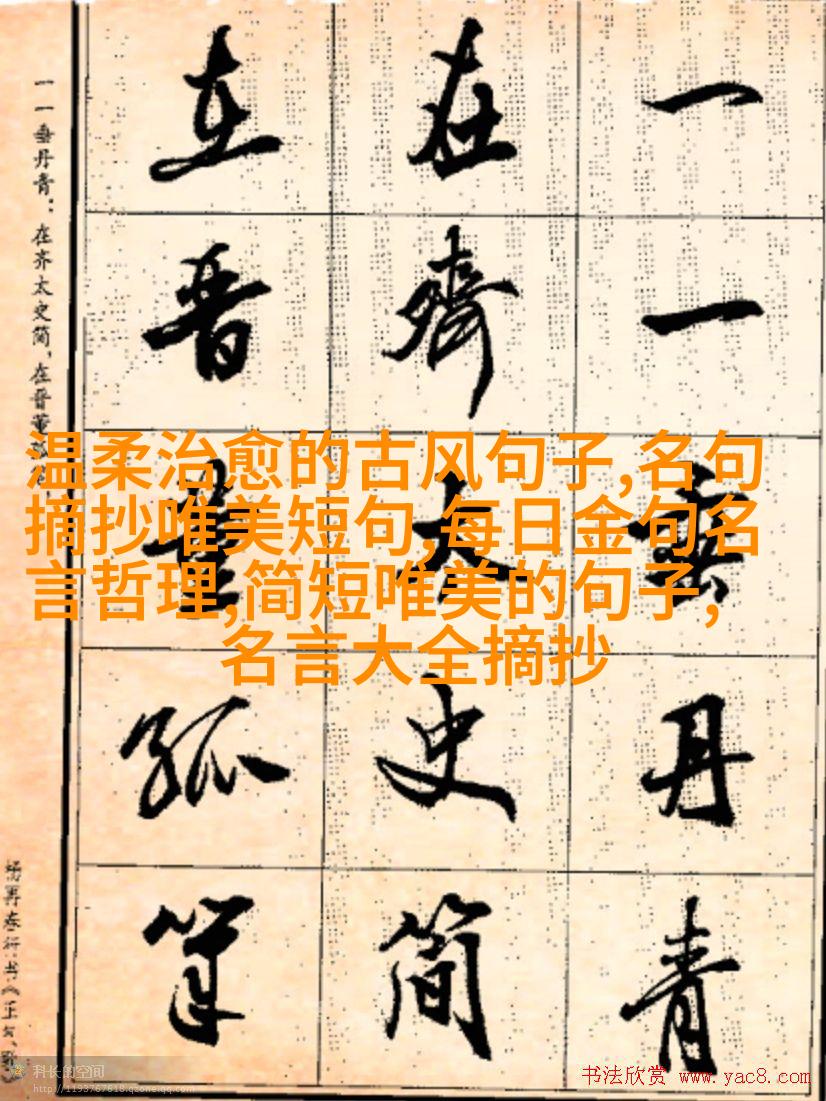 一一垂丹青
在齊太史简
在晋董狐筆
一一垂丹青：在齐太史简，在晋董
杨再春行书《正气
温柔治愈的古风句子,名句
摘抄唯美短句,每日金句名
言哲理,简短唯美的句子,
名言大全摘抄
科长的空间
http://1193767618.qzone.qq.com
书法欣赏 www.yac8.com